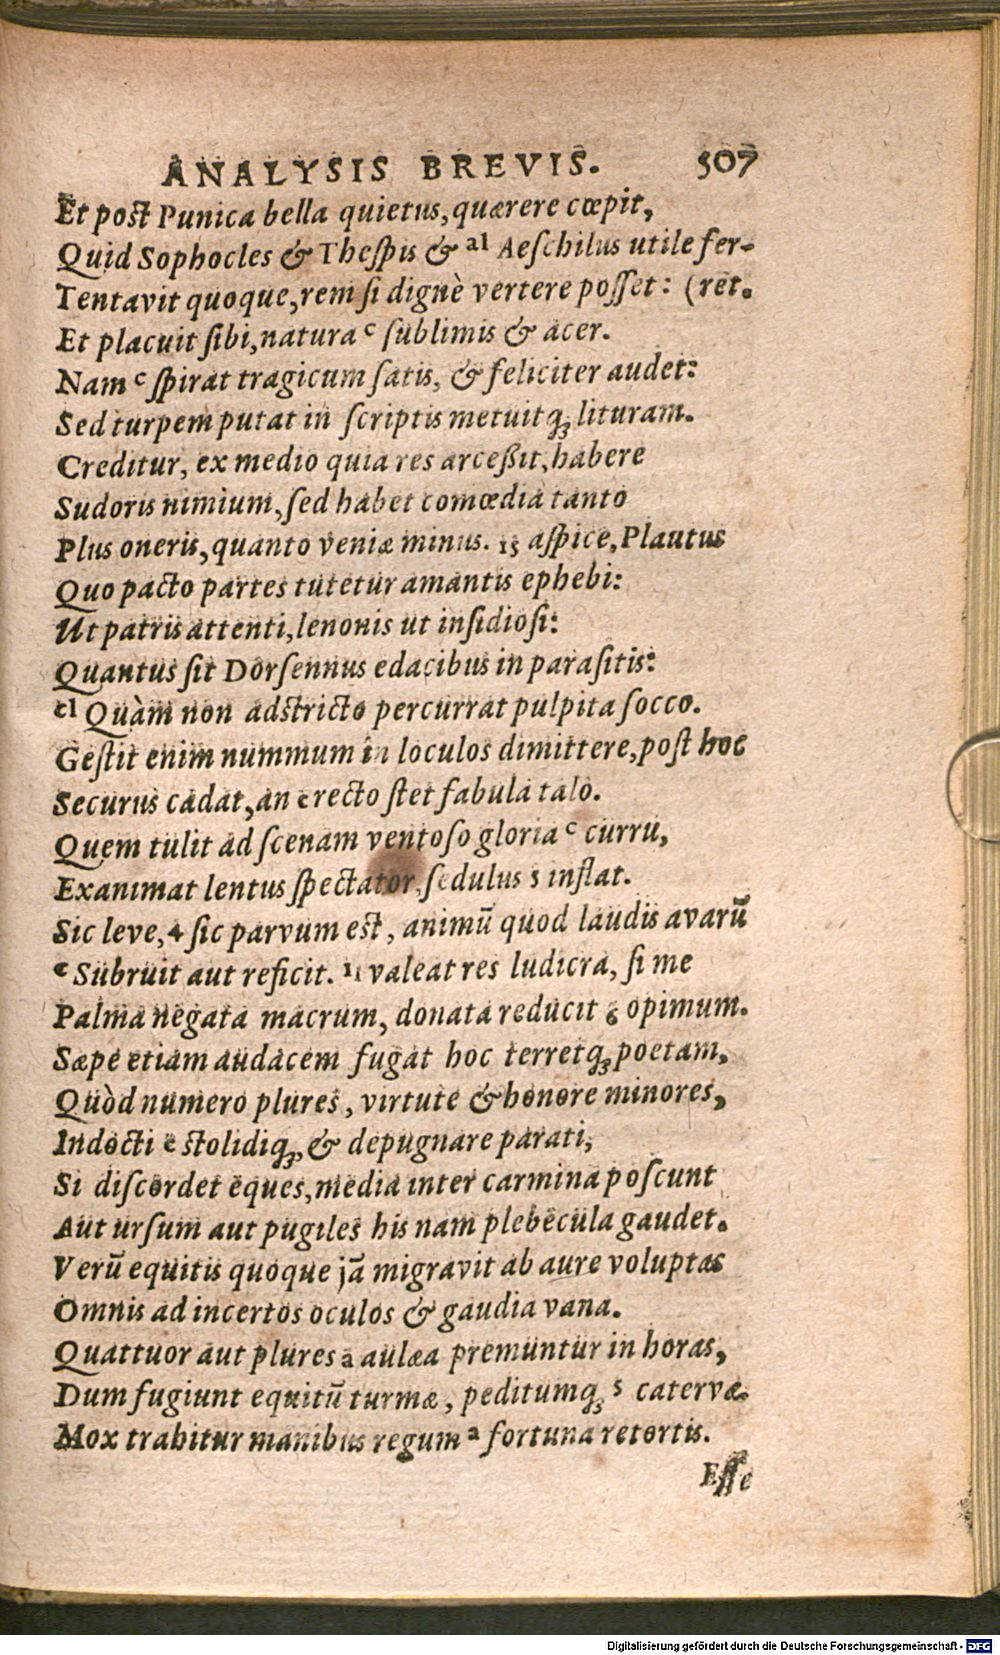 ANALYSIS BREVIS. 507
Et poſt Punica bella quietus, quærere cœpit,
Quid Sophocles & Theſpis & al Aeſchilus utile fer-
Tentavit quoque, rem ſi dignè vertere poſſet: (ret.
Et placuit ſibi, natura c ſublimis & acer.
Nam c ſpirat tragicum ſatis, & feliciter audet:
Sed turpem putat in ſcriptis metuitq́ꝫ lituram.
Creditur, ex medio quia res arceßit, habere
Sudoris nimium, ſed habet comœdia tanto
Plus oneris, quanto veniæ minus. 15 aſpice, Plautus
Quo pacto partes tutetur amantis ephebi:
Ut patris attenti, lenonis ut inſidioſi:
Quantus ſit Dorſennus edacibus in paraſitis:
cl Quàm non adſtricto percurrat pulpita ſocco.
Geſtit enim nummum in loculos dimittere, poſt hoc
Securus cadat, an recto ſtet fabula talo.
Quem tulit ad ſcenam ventoſo gloria c curru,
Exanimat lentus ſpectator, ſedulus 5 inflat.
Sic leve, 4 ſic parvum eſt, animū quod laudis avarū
c Subruit aut reficit. 11 valeat res ludicra, ſi me
Palma negata macrum, donata reducit 6 opimum.
Sæpe etiam audacem fugat hoc terretqꝫ poetam,
Quòd numero plures, virtute & honore minores,
Indocti e ſtolidiqꝫ, & depugnare parati,
Si diſcordet eques, media inter carmina poſcunt
Aut urſum aut pugiles his nam plebecula gaudet.
Verū equitis quoque jā migravit ab aure voluptas
Omnis ad incertos oculos & gaudia vana.
Quattuor aut plures a aulæa premuntur in horas,
Dum fugiunt equitū turmæ, peditumqꝫ 5 catervæ.
Mox trahitur manibus regum a fortuna retortis.
Eſſe
Digitalisierung gefördert durch die Deutsche Forschungsgemeinschaft - DFG